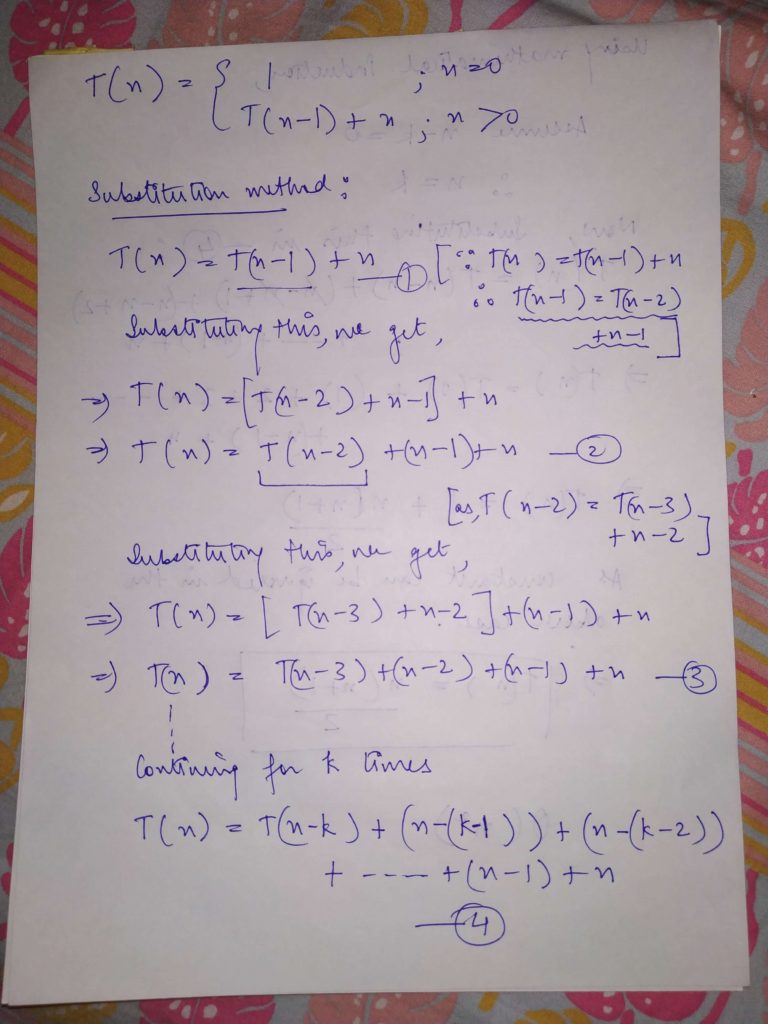 T(n) = { 1 ; n=0
T(n-1) + n ; n >0
Substitution method :
T(n) = T(n-1) + n —① [∵ T(n) = T(n-1)+n
∴ T(n-1) = T(n-2)
+n-1 ]
Substituting this, we get,
⇒ T(n) = [T(n-2) + n-1] + n
⇒ T(n) = T(n-2) +(n-1)+ n —②
[as, T(n-2) = T(n-3)
+ n-2 ]
Substituting this, we get,
⇒ T(n) = [ T(n-3) +n-2 ]+(n-1) + n
⇒ T(n) = T(n-3) +(n-2) +(n-1) +n —③
Contining for k times
T(n) = T(n-k) + (n-(k-1)) + (n-(k-2))
+ ---- +(n-1) +n
—④